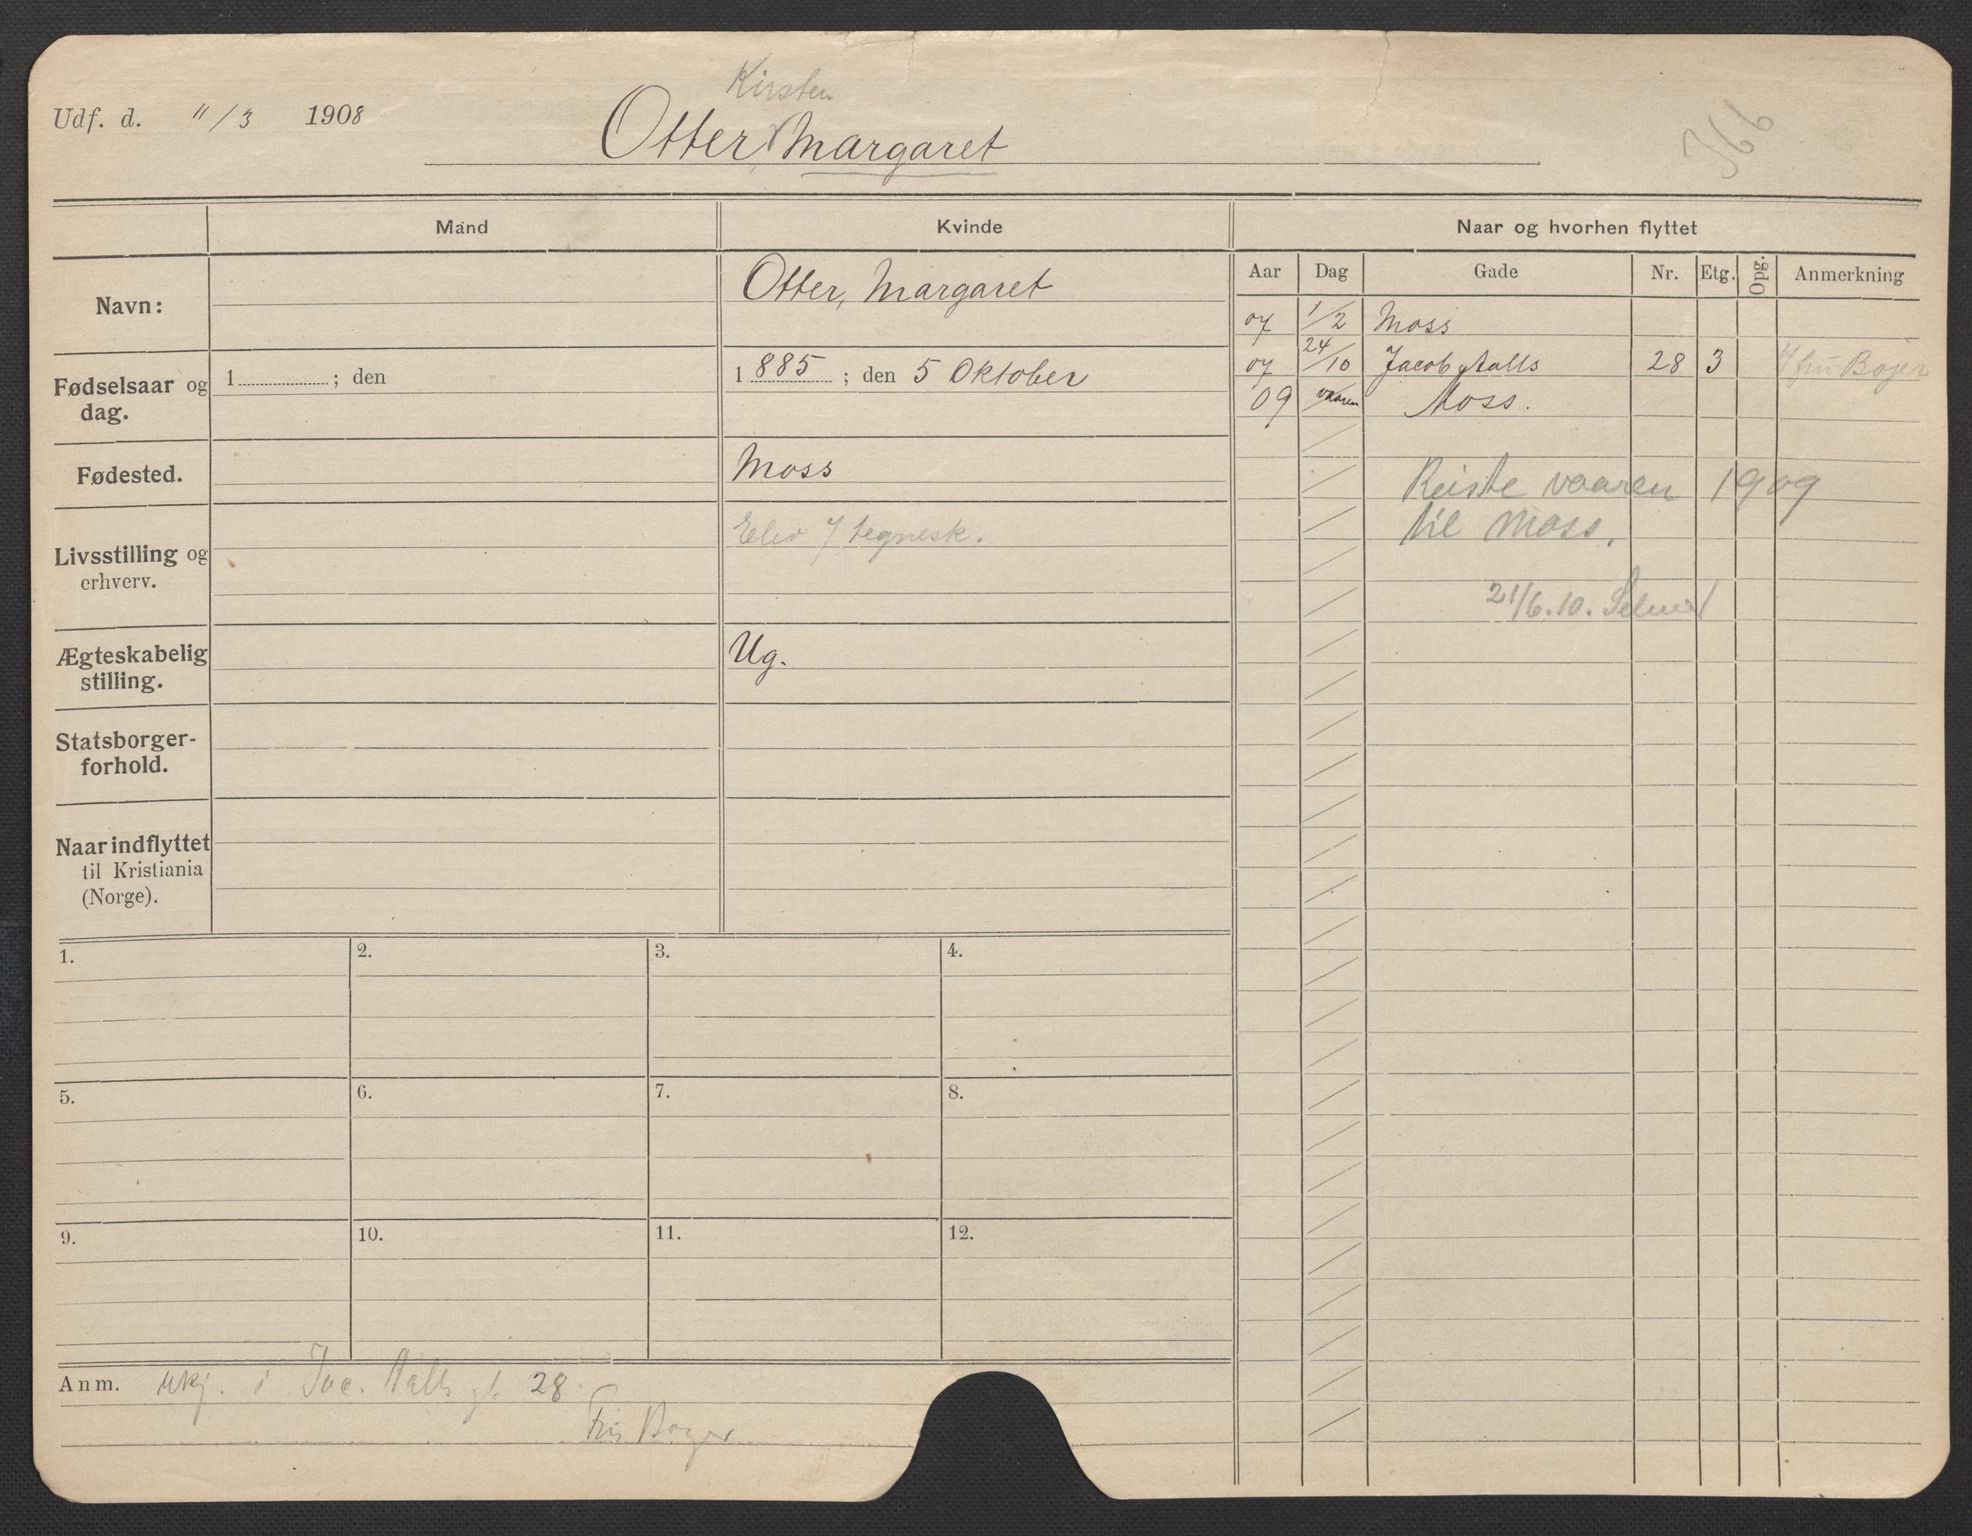 Kirsten
Udf. d. 11/3 1908
Otter, Margaret
Mand
Kvinde
Naar og hvorhen flyttet
Navn:
Otter, Margaret
Aar Dag Gade Nr. Etg. Opg. Anmerkning
07 1/2 Moss
Fødselsaar og dag.
1 ; den
1885 ; den 5 Oktober
07 24/10 Jacob Aalls 28 3 fru Bojer
09 vaaren Moss.
Fødested.
Moss
Reiste vaaren 1909
til Moss.
Livsstilling og
erhverv.
Elev / tegnesk.
21/6.10.
Ægteskabelig
stilling.
Ug.
Statsborger-
forhold.
Naar indflyttet
til Kristiania
(Norge).
1. 2. 3. 4.
5. 6. 7. 8.
9. 10. 11. 12.
Anm. ukj. i Jac. Aalls gt. 28
Fru Boyer